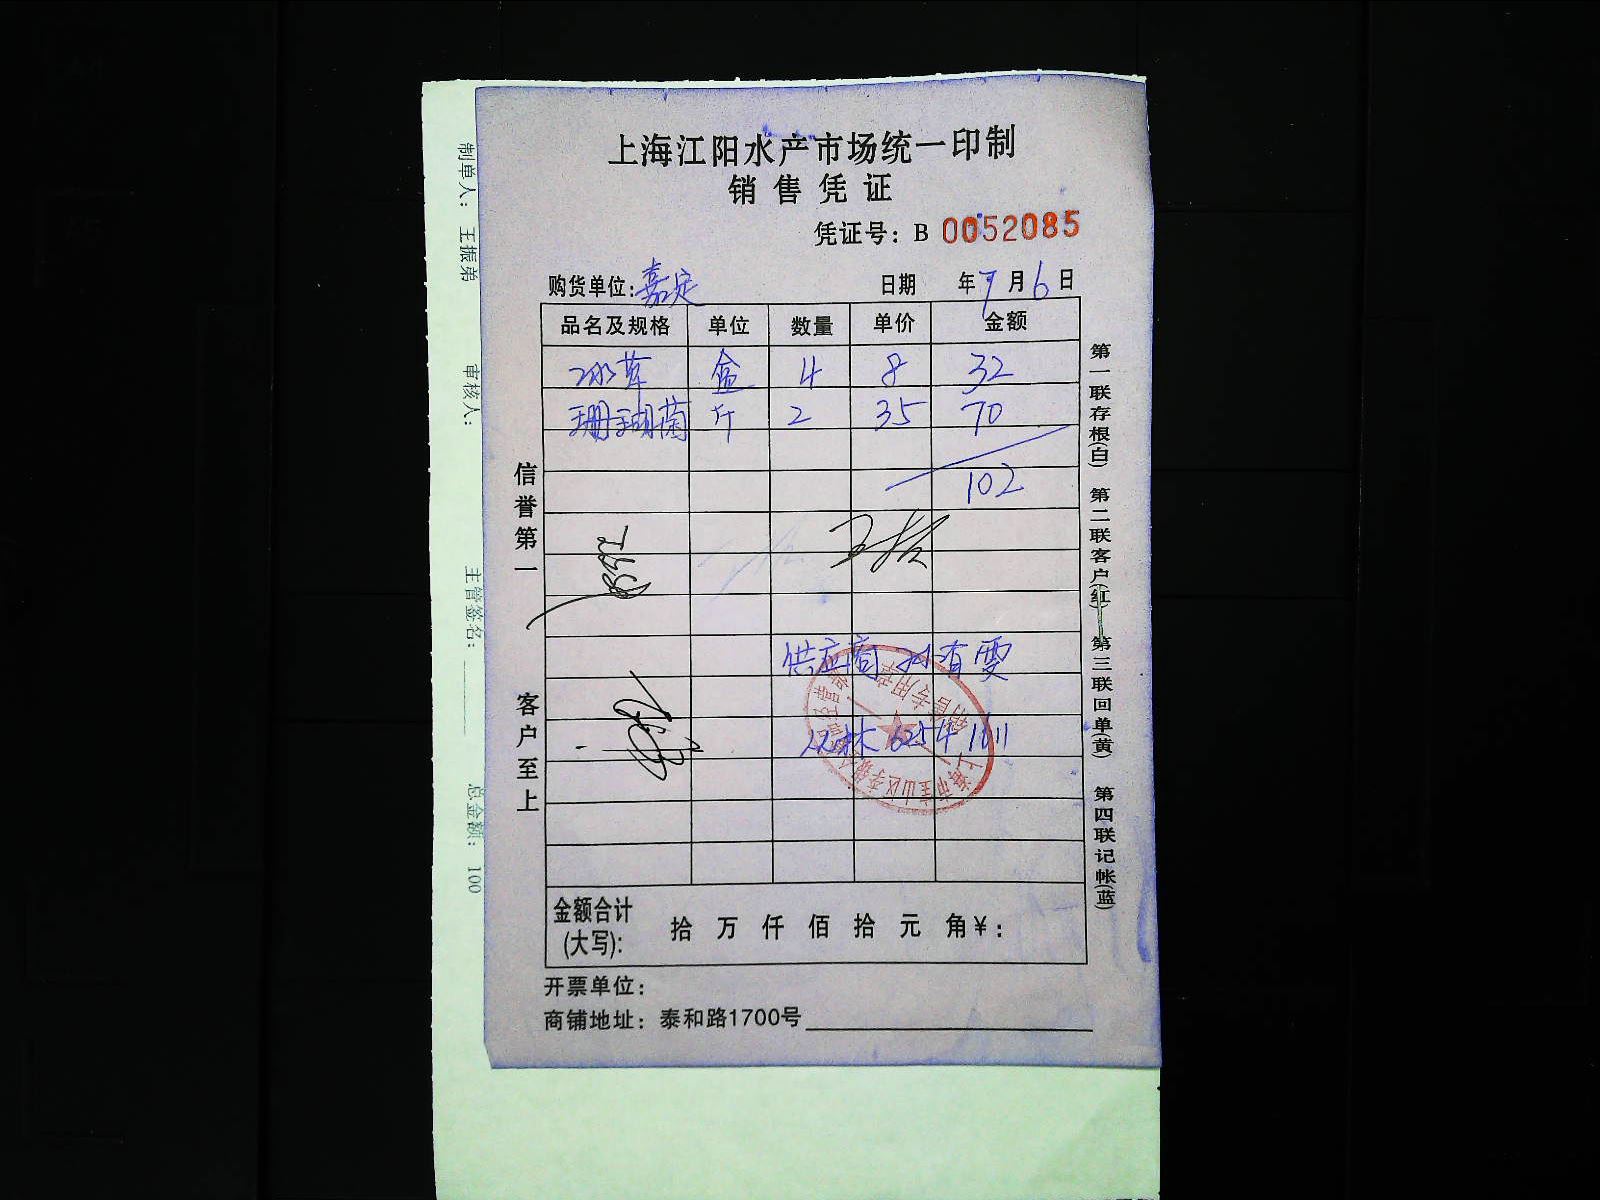 上海江阳水产市场统一印制
销售凭证
凭证号: B 0052085
购货单位: 嘉定 日期 年 7 月 6 日
品名及规格 单位 数量 单价 金额
冰草 盒 4 8 32
珊瑚菌 斤 2 35 70
102
供应商
金额合计(大写): 拾 万 仟 佰 拾 元 角 ¥:
开票单位:
商铺地址: 泰和路1700号
信誉第一
客户至上
第一联存根(白) 第二联客户(红) 第三联回单(黄) 第四联记帐(蓝)
制单人: 王振弟 审核人: 主管签名: 总金额: 100